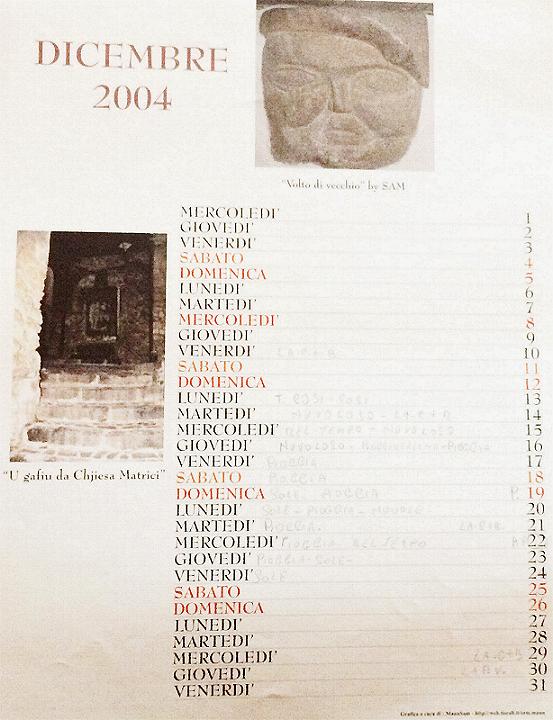 DICEMBRE
2004
"Volto di vecchio" by SAM
MERCOLEDI' 1
GIOVEDI' 2
VENERDI' 3
SABATO 4
DOMENICA 5
LUNEDI' 6
MARTEDI' 7
MERCOLEDI' 8
GIOVEDI' 9
VENERDI' 10
SABATO 11
DOMENICA 12
LUNEDI' 13
MARTEDI' NUVOLOSO 14
MERCOLEDI' NUVOLOSO 15
GIOVEDI' NUVOLOSO PIOGGIA 16
VENERDI' PIOGGIA 17
SABATO PIOGGIA 18
DOMENICA SOLE PIOGGIA P. 19
LUNEDI' SOLE - PIOGGIA - NUVOLE 20
MARTEDI' PIOGGIA. 21
MERCOLEDI' PIOGGIA 22
GIOVEDI' PIOGGIA - SOLE - 23
VENERDI' SOLE 24
SABATO 25
DOMENICA 26
LUNEDI' 27
MARTEDI' 28
MERCOLEDI' 29
GIOVEDI' 30
VENERDI' 31
"U gafiu da Chjiesa Matrici"